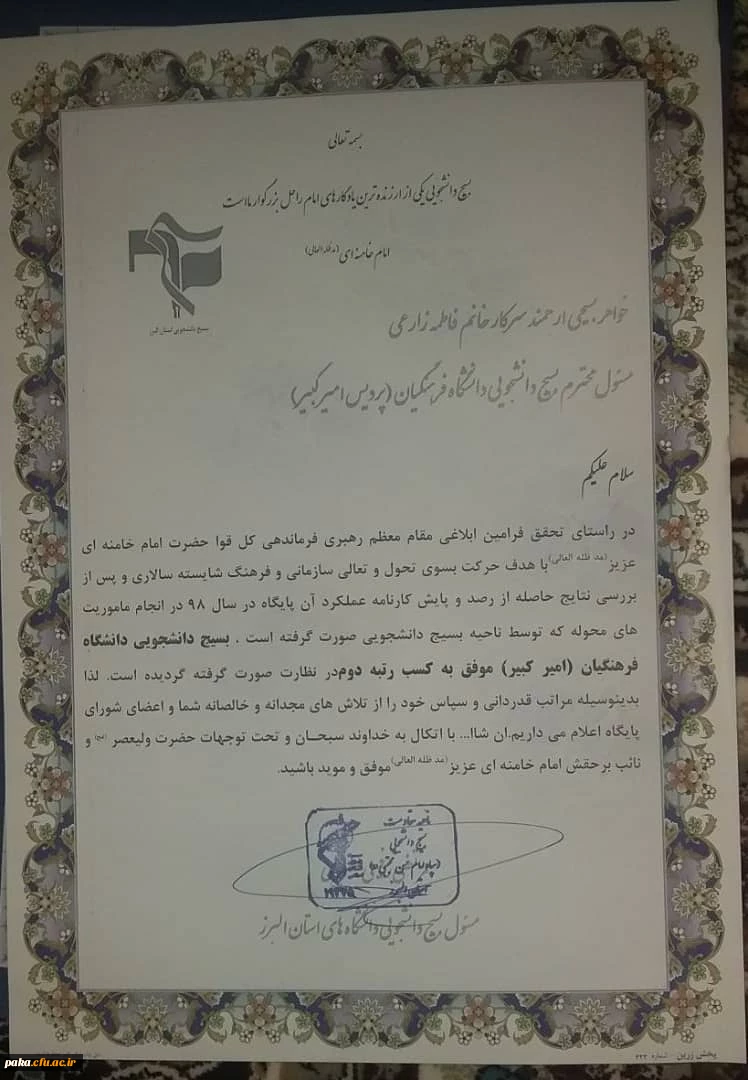 بسمه تعالی
بسیج دانشجویی یکی از ارزنده ترین یادگارهای امام راحل بزرگوار ماست
امام خامنه ای (مدظله العالی)
بسیج دانشجویی استان البرز
خواهر بسیجی ارجمند سرکار خانم فاطمه زارعی
مسئول محترم بسیج دانشجویی دانشگاه فرهنگیان (پردیس امیرکبیر)
سلام علیکم
در راستای تحقق فرامین ابلاغی مقام معظم رهبری فرماندهی کل قوا حضرت امام خامنه ای
عزیز(مد ظله العالی)با هدف حرکت بسوی تحول و تعالی سازمانی و فرهنگ شایسته سالاری و پس از
بررسی نتایج حاصله از رصد و پایش کارنامه عملکرد آن پایگاه در سال ۹۸ در انجام ماموریت
های محوله که توسط ناحیه بسیج دانشجویی صورت گرفته است ، بسیج دانشجویی دانشگاه
فرهنگیان (امیر کبیر) موفق به کسب رتبه دوم در نظارت صورت گرفته گردیده است. لذا
بدینوسیله مراتب قدردانی و سپاس خود را از تلاش های مجدانه و خالصانه شما و اعضای شورای
پایگاه اعلام می داریم.ان شاا... با اتکال به خداوند سبحان و تحت توجهات حضرت ولیعصر (عج) و
نائب برحقش امام خامنه ای عزیز(مد ظله العالی)موفق و موید باشید.
ناحیه مقاومت
بسیج دانشجویی
مسئول بسیج دانشجویی دانشگاه های استان البرز
پخش زرین - شماره ۴۳۳
paka.cfu.ac.ir